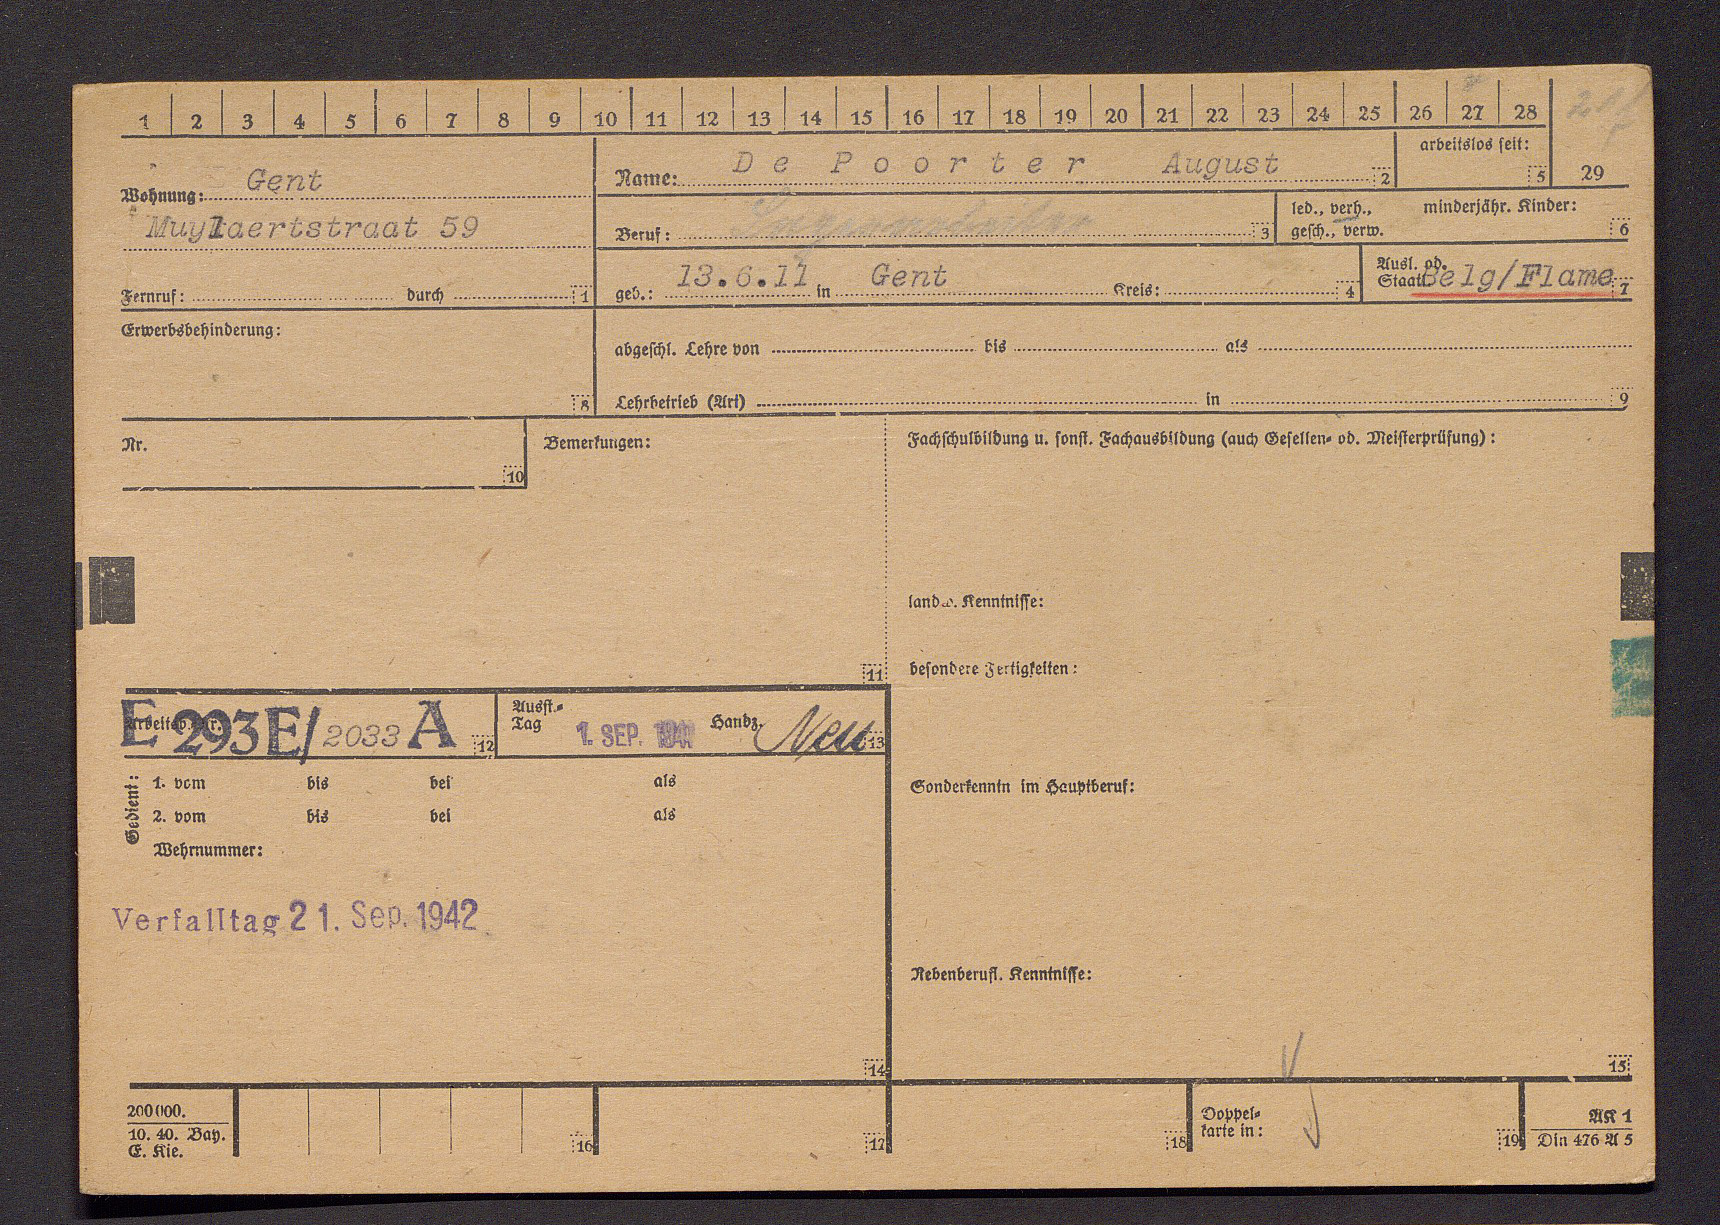 1 2 3 4 5 6 7 8 9 10 11 12 13 14 15 16 17 18 19 20 21 22 23 24 25 26 27 28
29
Wohnung: Gent
Muylaertstraat 59
Fernruf: durch 1
Name: De Poorter August 2
arbeitslos seit: 5
Beruf: 3
led., verh., gesch., verw.
minderjähr. Kinder: 6
geb.: 13.6.11 in Gent Kreis: 4
Ausl. od. Staatl. Belg/Flame 7
Erwerbsbehinderung: 8
abgeschl. Lehre von bis als
Lehrbetrieb (Art) in 9
Nr. 10
Bemerkungen: 11
Fachschulbildung u. sonst. Fachausbildung (auch Gesellen- od. Meisterprüfung):
landw. Kenntnisse:
besondere Fertigkeiten:
Sonderkenntn im Hauptberuf:
Nebenberufl. Kenntnisse:
15
Arbeitsb. Nr. E 293E/2033 A 12
Ausst.-Tag 1. SEP. 1941 Handz. Neu 13
Gedient:
1. vom bis bei als
2. vom bis bei als
Wehrnummer:
Verfalltag 21. Sep. 1942
14
200000.
10. 40. Bay.
E. Kie.
16 17 18
Doppel-
karte in: 19
AK 1
Din 476 A 5